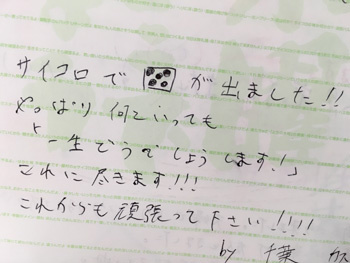 サイコロで ⚄ が出ました!!
やっぱり何といっても
「一生どうでしょうします!」
これに尽きます!!!
これからも頑張って下さい!!!!
by 千葉 カズ